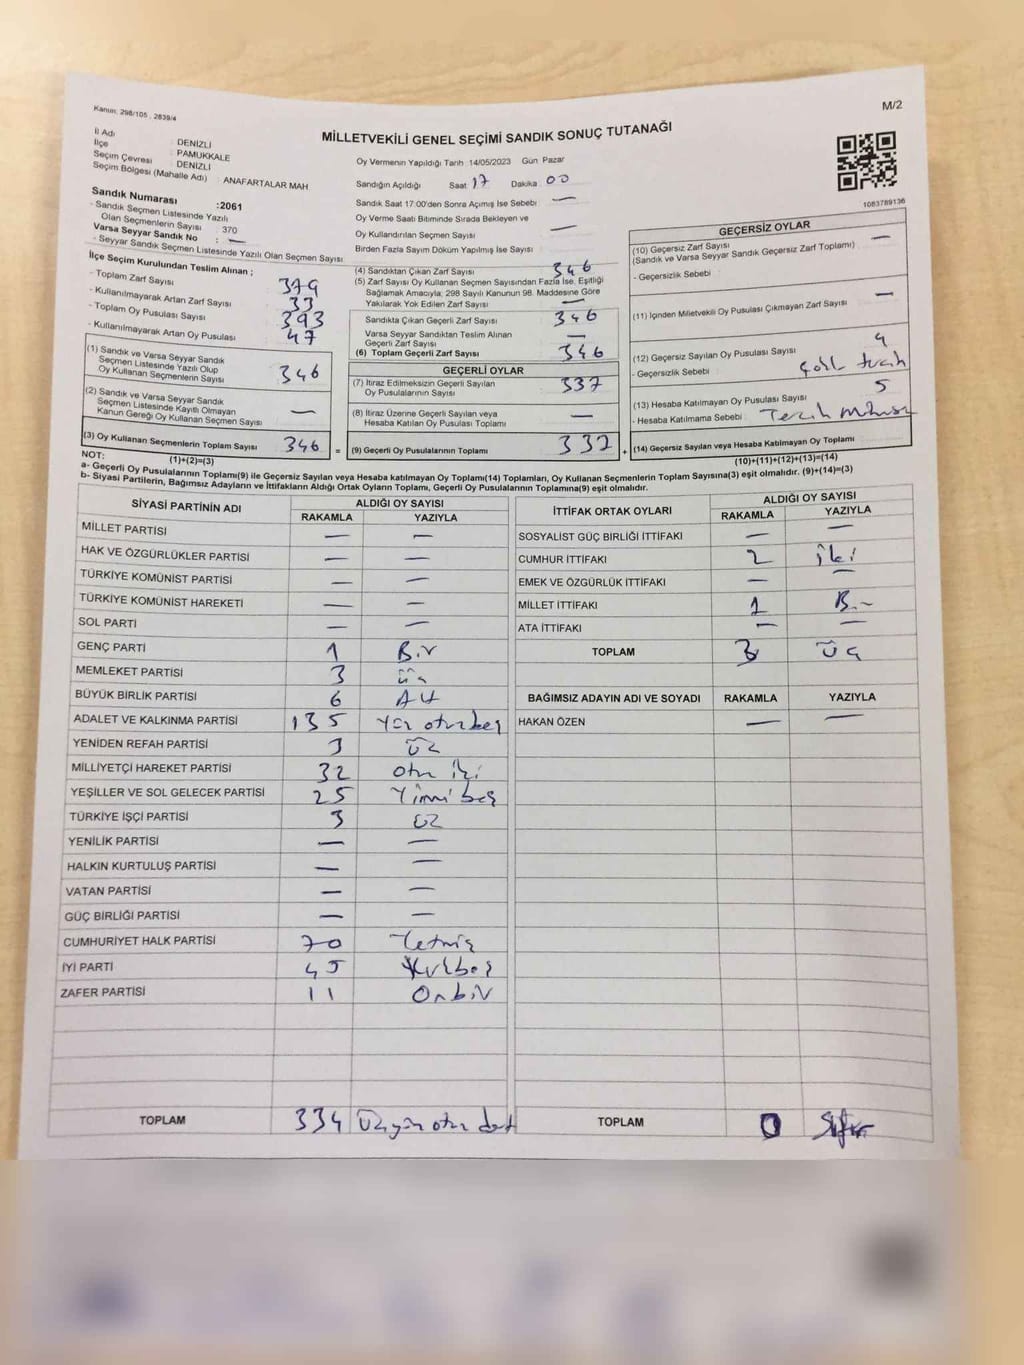 Kanun: 298/105 , 2839/4
M/2
MİLLETVEKİLİ GENEL SEÇİMİ SANDIK SONUÇ TUTANAĞI
İl Adı : DENİZLİ
İlçe : PAMUKKALE
Seçim Çevresi : DENİZLİ
Seçim Bölgesi (Mahalle Adı) : ANAFARTALAR MAH
Sandık Numarası :2061
- Sandık Seçmen Listesinde Yazılı
Olan Seçmenlerin Sayısı : 370
Varsa Seyyar Sandık No : —
- Seyyar Sandık Seçmen Listesinde Yazılı Olan Seçmen Sayısı:
İlçe Seçim Kurulundan Teslim Alınan ;
- Toplam Zarf Sayısı : 379
- Kullanılmayarak Artan Zarf Sayısı : 33
- Toplam Oy Pusulası Sayısı : 393
- Kullanılmayarak Artan Oy Pusulası : 47
(1) Sandık ve Varsa Seyyar Sandık
Seçmen Listesinde Yazılı Olup
Oy Kullanan Seçmenlerin Sayısı 346
(2) Sandık ve Varsa Seyyar Sandık
Seçmen Listesinde Kayıtlı Olmayan
Kanun Gereği Oy Kullanan Seçmen Sayısı —
(3) Oy Kullanan Seçmenlerin Toplam Sayısı 346
(1)+(2)=(3)
Oy Vermenin Yapıldığı Tarih 14/05/2023 Gün Pazar
Sandığın Açıldığı Saat 17 Dakika 00
Sandık Saat 17:00'den Sonra Açımış İse Sebebi : —
Oy Verme Saati Bitiminde Sırada Bekleyen ve
Oy Kullandırılan Seçmen Sayısı : —
Birden Fazla Sayım Döküm Yapılmış İse Sayısı :
(4) Sandıktan Çıkan Zarf Sayısı : 346
(5) Zarf Sayısı Oy Kullanan Seçmen Sayısından Fazla İse, Eşitliği
Sağlamak Amacıyla; 298 Sayılı Kanunun 98. Maddesine Göre
Yakılarak Yok Edilen Zarf Sayısı : —
Sandıkta Çıkan Geçerli Zarf Sayısı : 346
Varsa Seyyar Sandıktan Teslim Alınan
Geçerli Zarf Sayısı : —
(6) Toplam Geçerli Zarf Sayısı : 346
GEÇERLİ OYLAR
(7) İtiraz Edilmeksizin Geçerli Sayılan
Oy Pusulalarının Sayısı : 337
(8) İtiraz Üzerine Geçerli Sayılan veya
Hesaba Katılan Oy Pusulası Toplamı : —
= (9) Geçerli Oy Pusulalarının Toplamı 337 +
1083789136
GEÇERSİZ OYLAR
(10) Geçersiz Zarf Sayısı : —
(Sandık ve Varsa Seyyar Sandık Geçersiz Zarf Toplamı)
- Geçersizlik Sebebi :
(11) İçinden Milletvekili Oy Pusulası Çıkmayan Zarf Sayısı : —
(12) Geçersiz Sayılan Oy Pusulası Sayısı : 4
- Geçersizlik Sebebi :
(13) Hesaba Katılmayan Oy Pusulası Sayısı : 5
- Hesaba Katılmama Sebebi : Tercih
(14) Geçersiz Sayılan veya Hesaba Katılmayan Oy Toplamı
(10)+(11)+(12)+(13)=(14)
NOT:
a- Geçerli Oy Pusulalarının Toplamı(9) ile Geçersiz Sayılan veya Hesaba katılmayan Oy Toplamı(14) Toplamları, Oy Kullanan Seçmenlerin Toplam Sayısına(3) eşit olmalıdır. (9)+(14)=(3)
b- Siyasi Partilerin, Bağımsız Adayların ve İttifakların Aldığı Ortak Oyların Toplamı, Geçerli Oy Pusulalarının Toplamına(9) eşit olmalıdır.
SİYASİ PARTİNİN ADI ALDIĞI OY SAYISI
RAKAMLA YAZIYLA
MİLLET PARTİSİ — —
HAK VE ÖZGÜRLÜKLER PARTİSİ — —
TÜRKİYE KOMÜNİST PARTİSİ — —
TÜRKİYE KOMÜNİST HAREKETİ — —
SOL PARTİ — —
GENÇ PARTİ 1 Bir
MEMLEKET PARTİSİ 3 üç
BÜYÜK BİRLİK PARTİSİ 6 Altı
ADALET VE KALKINMA PARTİSİ 135 Yüz otuz beş
YENİDEN REFAH PARTİSİ 3 Üç
MİLLİYETÇİ HAREKET PARTİSİ 32 otuz iki
YEŞİLLER VE SOL GELECEK PARTİSİ 25 Yirmi beş
TÜRKİYE İŞÇİ PARTİSİ 3 üç
YENİLİK PARTİSİ — —
HALKIN KURTULUŞ PARTİSİ — —
VATAN PARTİSİ — —
GÜÇ BİRLİĞİ PARTİSİ — —
CUMHURİYET HALK PARTİSİ 70 Yetmiş
İYİ PARTİ 45 Kırkbeş
ZAFER PARTİSİ 11 Onbir
TOPLAM 334 Üçyüz otuz dört
İTTİFAK ORTAK OYLARI ALDIĞI OY SAYISI
RAKAMLA YAZIYLA
SOSYALİST GÜÇ BİRLİĞİ İTTİFAKI — —
CUMHUR İTTİFAKI 2 iki
EMEK VE ÖZGÜRLÜK İTTİFAKI — —
MİLLET İTTİFAKI 1 Bir
ATA İTTİFAKI — —
TOPLAM 3 Üç
BAĞIMSIZ ADAYIN ADI VE SOYADI RAKAMLA YAZIYLA
HAKAN ÖZEN — —
TOPLAM 0 Sıfır